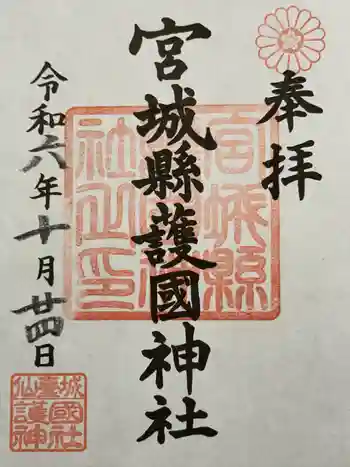 奉拝
宮城縣護國神社
令和六年十月廿四日
宮城縣護國神社之印
仙臺城
護國神社